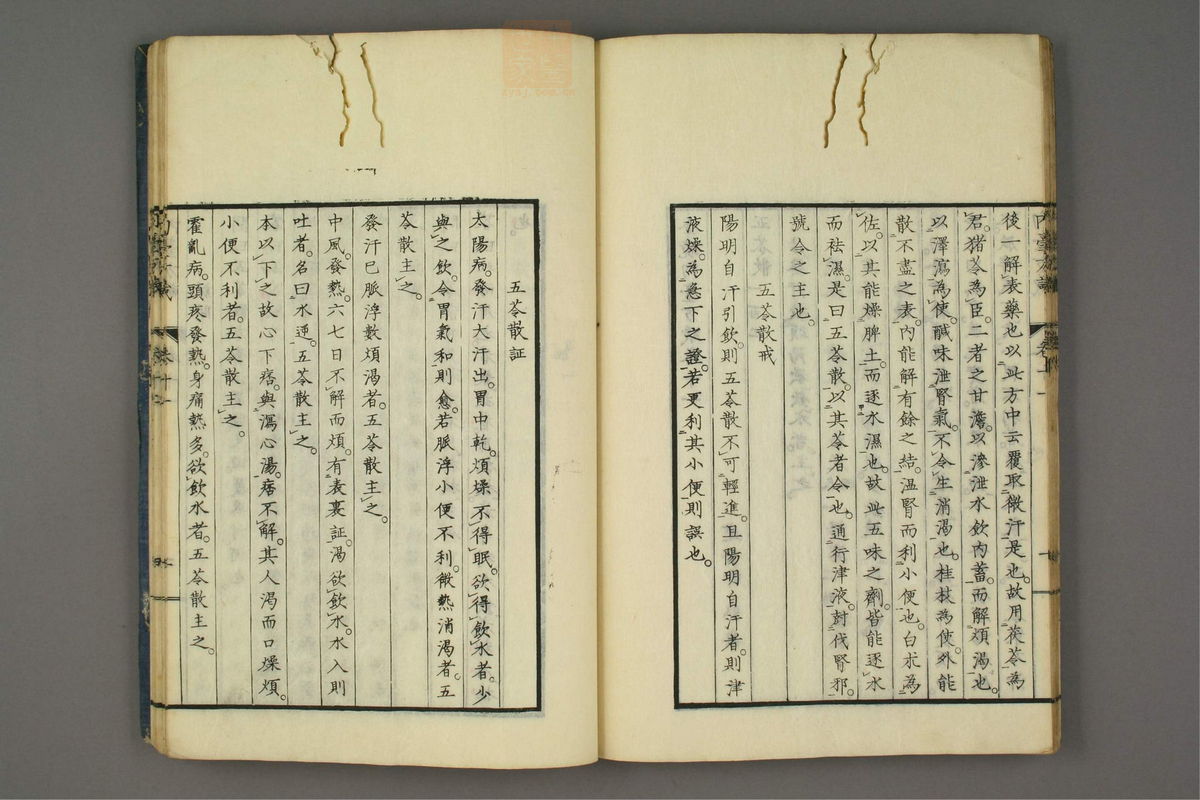 後一解表藥也以此方中云覆取微汗是也故用茯苓為
君猪苓為臣二者之甘澹以滲泄水飲内蓄而解煩渴也
以澤瀉為使鹹味泄腎氣不令生消渴也桂枝為使外能
散不盡之表内能解有餘之結温腎而利小便也白朮為
佐以其能燥脾土而逐水濕也故此五味之劑皆能逐水
而祛濕是曰五苓散以其苓者令也通行津液討伐腎邪
號令之主也
五苓散戒
陽明自汗引飲則五苓散不可輕進且陽明自汗者則津
液燥為急下之證若更利其小便則誤也
五苓散証
太陽病發汗大汗出胃中乾煩燥不得眠欲得飲水者少
與之飲令胃氣和則愈若脈浮小便不利微熱消渴者五
苓散主之
發汗已脈浮數煩渴者五苓散主之
中風發熱六七日不解而煩有表裏証渴欲飲水水入則
吐者名曰水逆五苓散主之
本以下之故心下痞與瀉心湯痞不解其人渴而口燥煩
小便不利者五苓散主之
霍亂病頭疼發熱身痛熱多欲飲水者五苓散主之